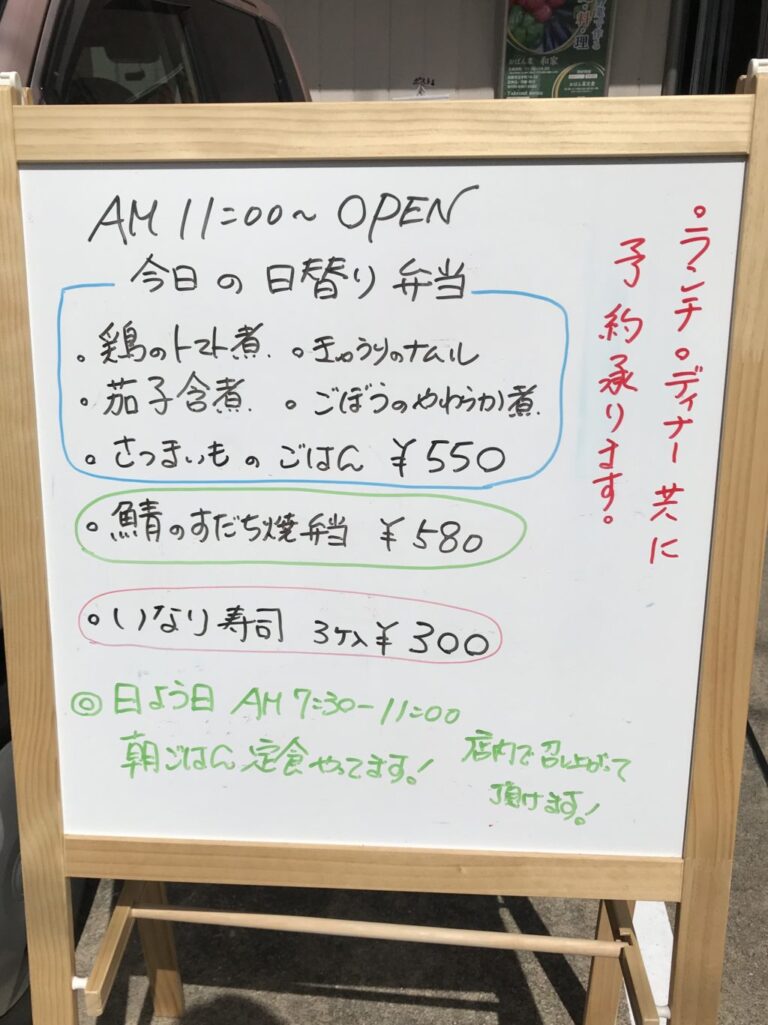 AM 11:00〜 OPEN
今日の日替り弁当
。鶏のトマト煮. 。きゅうりのナムル
。茄子含煮. 。ごぼうのやわらか煮.
。さつまいものごはん ¥550
。鯖のすだち焼弁当 ¥580
。いなり寿司 3ケ入¥300
◎日よう日 AM 7:30-11:00
朝ごはん定食やってます!
店内で召し上がって
頂けます!
。ランチ。ディナー共に
予約承ります。
おばん菜 和家